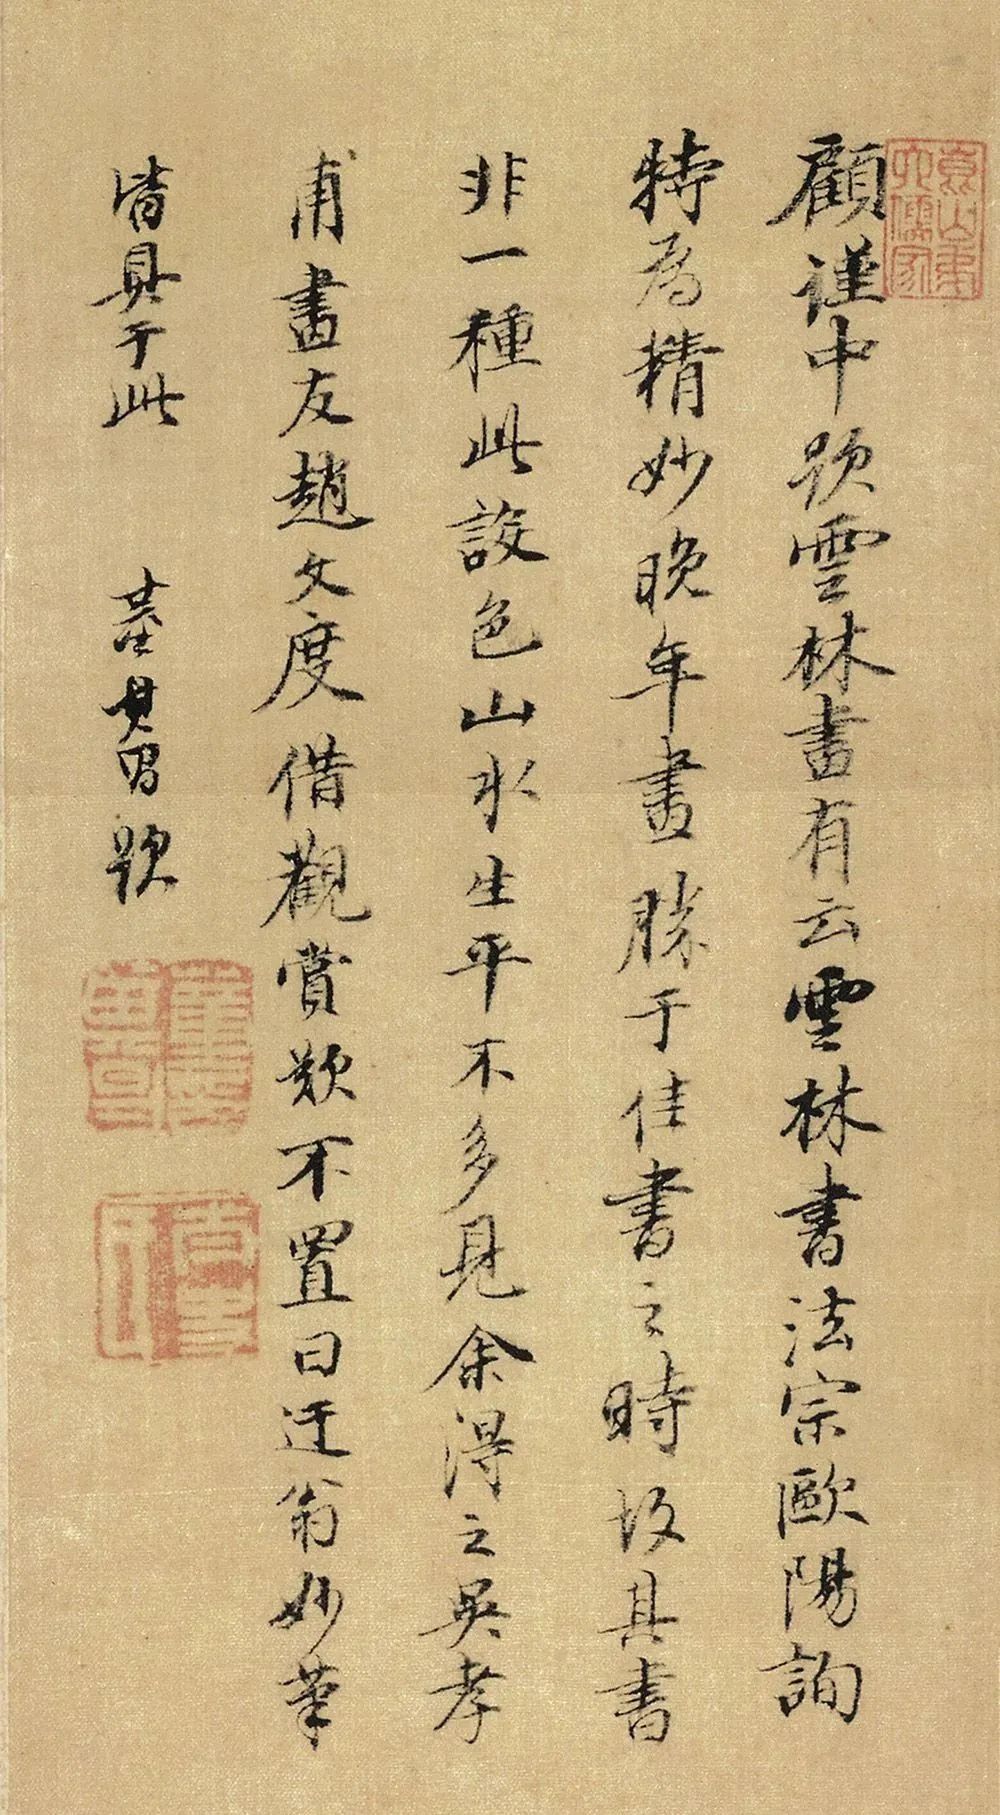 顧謹中題雲林畫有云雲林書法宗歐陽詢
特為精妙晚年畫勝于佳書之時故其書
非一種此設色山水生平不多見余得之吳孝
甫畫友趙文度借觀賞歎不置曰迂翁妙筆
皆具于此 董其昌題